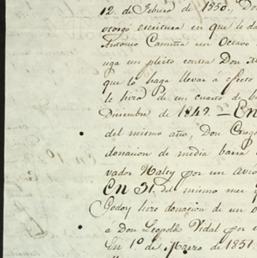 12. de Febrero de 1850. Do
otorgo escritura en que le da
Antonio un Octavo
siga un pleito contra Don
que lo haga llevar a efecto
le libró de un cuarto de b
Diciembre de 1849. – En
del mismo año, Don Greg
donacion de media barra
vador Haley por un
En 31. del mismo mes
Godoy hizo donacion de un o
a Don Leopold Vidal por
En 1º de Enero de 1851.